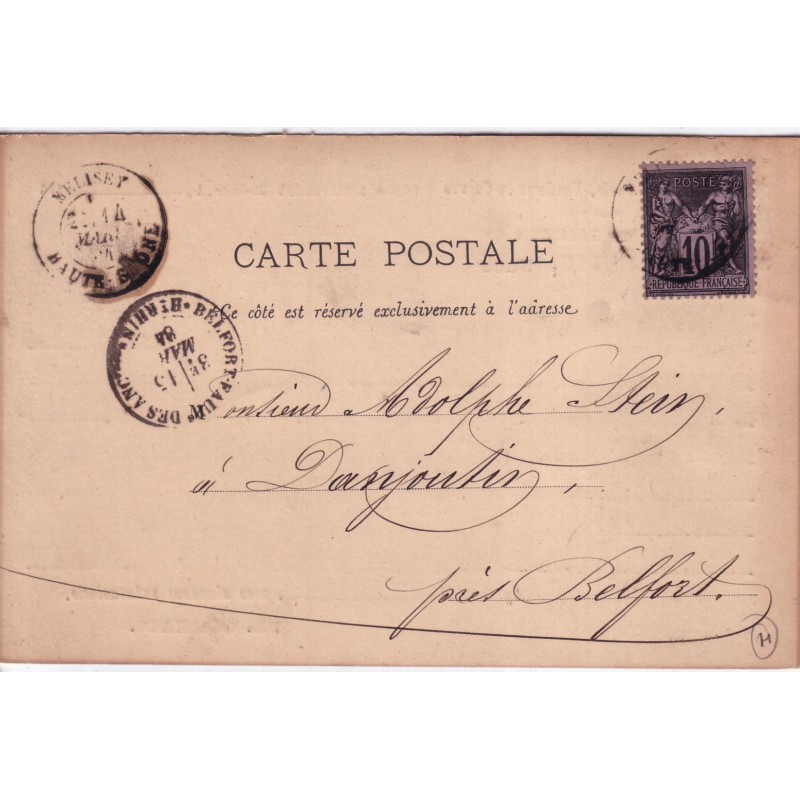 MELISEY
14
MARS
HAUTE-SAÔNE
POSTE
10
REPUBLIQUE FRANÇAISE
CARTE POSTALE
Ce côté est réservé exclusivement à l'adresse
BELFORT-FAUB DES ANC
HT RHIN
3E
15
MAR
84
Monsieur Adolphe Stein,
à Danjoutin,
près Belfort.
H